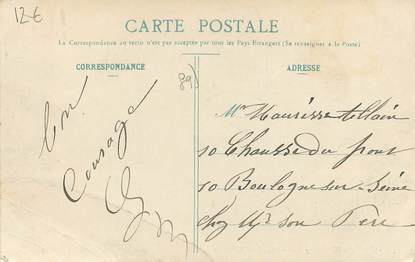 12€
CARTE POSTALE
La Correspondance au recto n'est pas acceptée par tous les Pays Etrangers (Se renseigner à la Poste)
CORRESPONDANCE
ADRESSE
89)
Bon
Courage
Mr Maurisse Allain
10 Chaussée du pont
10 Boulogne sur Seine
chez Mr son Père